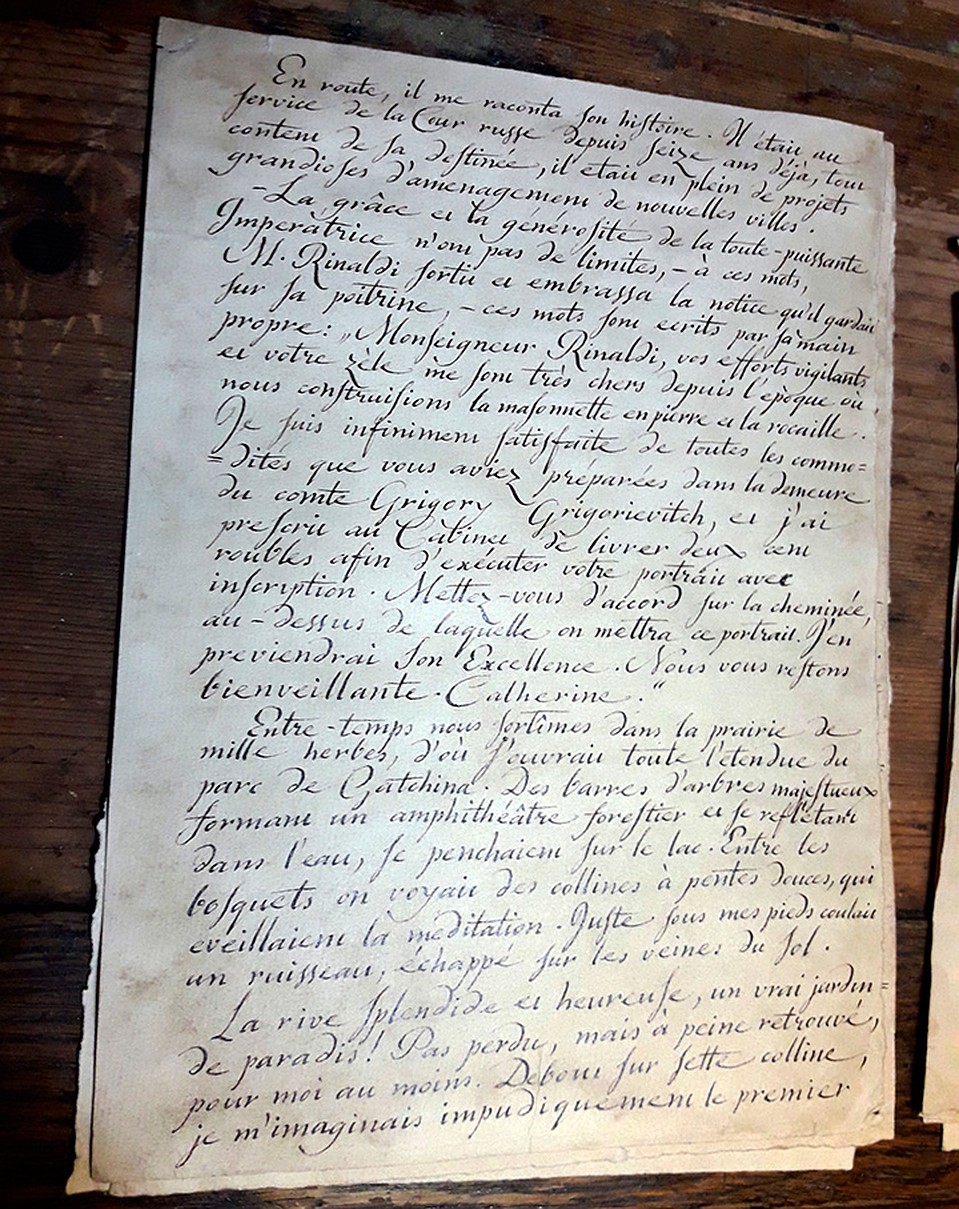 En route, il me raconta son histoire. Il était au
service de la Cour russe depuis seize ans déjà, tout
content de sa destinée, il était en plein de projets
grandioses d'amenagement de nouvelles villes.
- La grâce et la générosité de la toute-puissante
Imperatrice n'ont pas de limites, - à ces mots,
M. Rinaldi sortit et embrassa la notice qu'il gardait
sur sa poitrine, - ces mots sont ecrits par sa main
propre: „Monseigneur Rinaldi, vos efforts vigilants
et votre zèle me sont très chers depuis l'epoque où
nous construisions la masonnette en pierre et la rocaille.
Je suis infiniment satisfaite de toutes les commo=
=dités que vous aviez préparées dans la demeure
du comte Grigory Grigorievitch, et j'ai
prescrit au Cabinet de livrer deux cent
roubles afin d'exécuter votre portrait avec
inscription. Mettez-vous d'accord sur la cheminée,
au-dessus de laquelle on mettra ce portrait. J'en
previendrai Son Excellence. Nous vous restons
bienveillante. Catherine."
Entre-temps nous sortîmes dans la prairie de
mille herbes, d'où s'ouvrait toute l'etendue du
parc de Gatchina. Des barres d'arbres majestueux
formant un amphithéâtre forestier et se reflétant
dans l'eau, se penchaient sur le lac. Entre les
bosquets on voyait des collines à pentes douces, qui
eveillaient la meditation. Juste sous mes pieds coulait
un ruisseau, échappé sur les veines du sol.
La rive splendide et heureuse, un vrai jardin=
de paradis! Pas perdu, mais à peine retrouvé,
pour moi au moins. Debout sur sette colline,
je m'imaginais impudiquement le premier